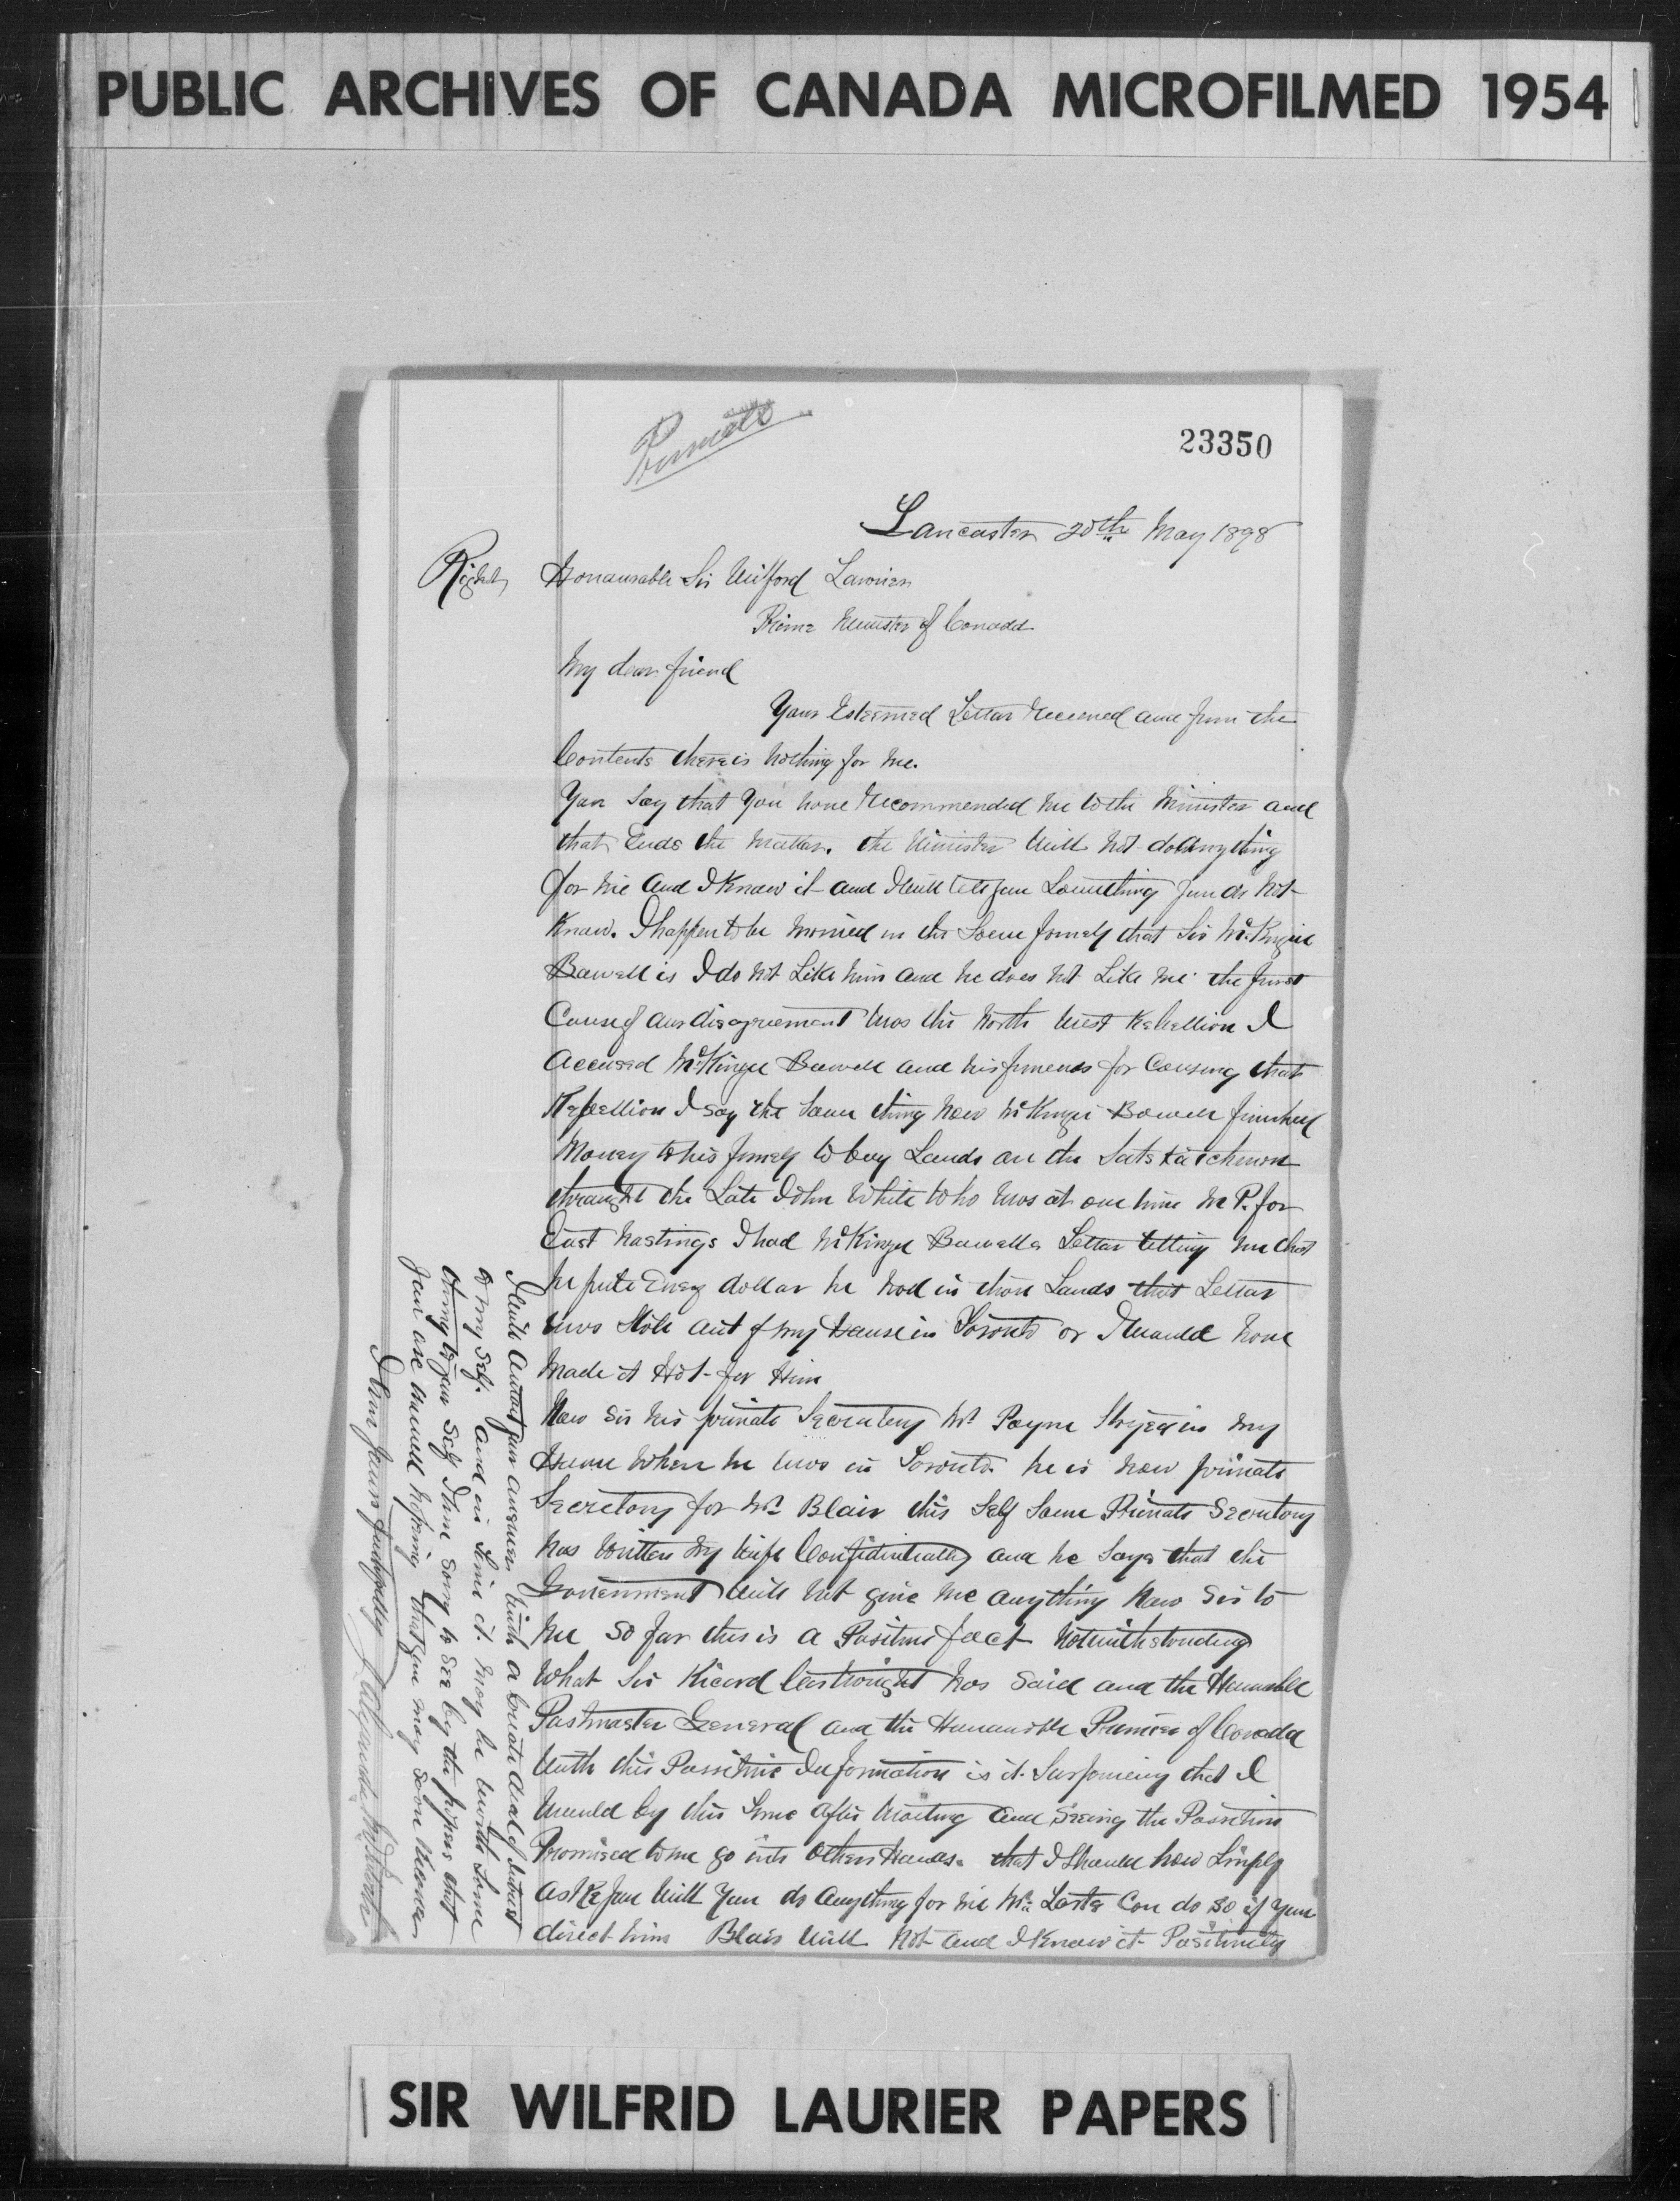 PUBLIC ARCHIVES OF CANADA MICROFILMED 1954
Private
23350
Lancaster 20th May 1898
Right Honaurable Sir Wilford Lawrier
Prime Minister of Canada
My dear friend
Your Esteemed Letter Received and from the
Contents there is nothing for me.
You say that you have Recommended me to the Minister and
that Ends the matter. the Minister will not do anything
for me and I Know it and I will tell you Something you do not
Know. I happen to be married in the Same family that Sir McKinzie
Bowell is I do not Like him and he does not Like me the first
Cause of our disagreement was the North West Rebellion I
accused McKinzie Bowell and his friends for Causing that
Rebellion I say the same thing now McKinzie Bowell furnished
Money to his family to buy Lands on the Satskatchewon
through the Late John White who was at one time M P. for
East Hastings I had McKinzie Bowells Letter telling me that
he puts Every dollar he had in them Lands that Letter
was Stole out of my House in Toronto or I would have
made it Hot for Him
Now Sir his private Secretary Mr Payne Stayed in my
House when he was in Toronto he is now private
Secretary for Mr Blair this Self Same Private Secretary
has written my wife Confidentially and he says that the
Government will not give me anything Now Sir to
me so far this is a Positive fact notwithstanding
What Sir Ricard Cartwright has said and the Honorable
Postmaster General and the Honourable Premier of Canada
With this Possitive Information is it Surprising that I
would by this time after waiting and seeing the Possition
Promised to me go into Others Hands. that I Should now Simply
ask you will you do anything for me Mr Tarte Can do so if you
direct him Blair will not and I Know it Positively
I will await your answer with a Great deal of Interest
to my self. and in time it may be worth some
thing to your self I am sorry to see by the papers that
you are unwell hoping that you may soon
I am yours faithfully
SIR WILFRID LAURIER PAPERS